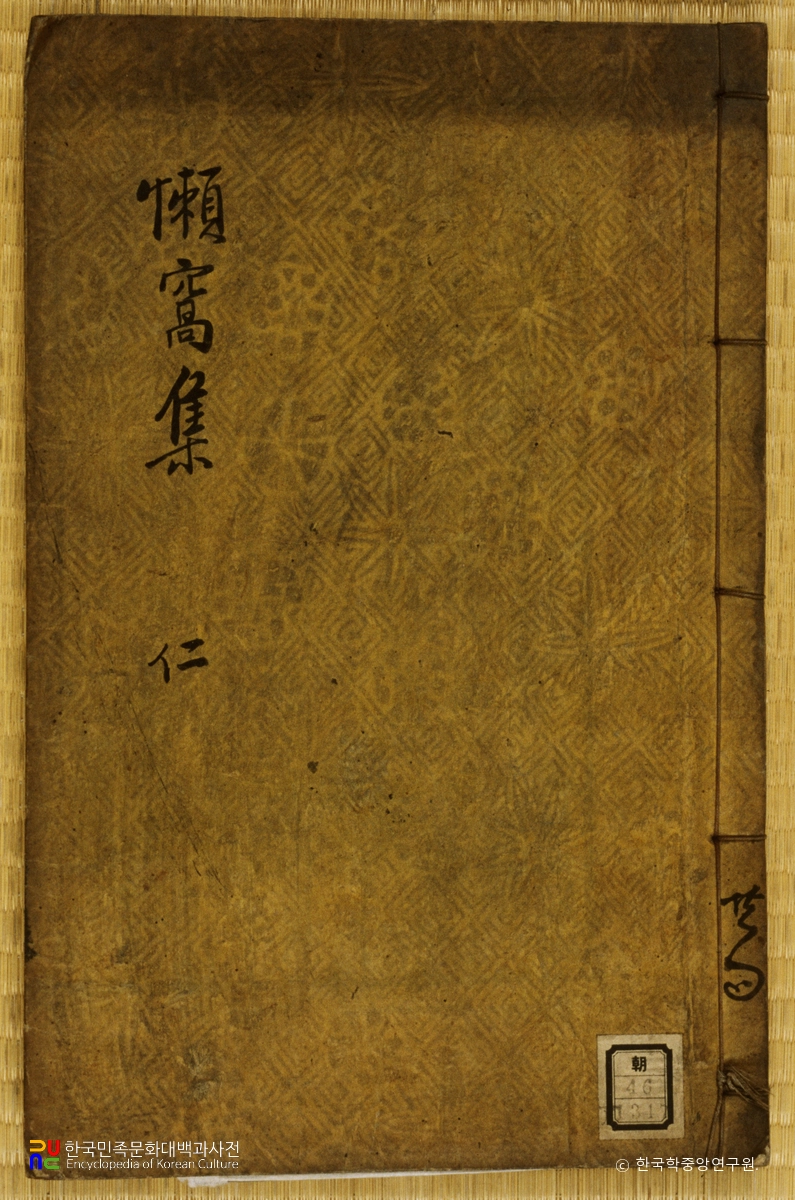 懶窩集
仁
共
朝
46
한국민족문화대백과사전
Encyclopedia of Korean Culture
© 한국학중앙연구원.